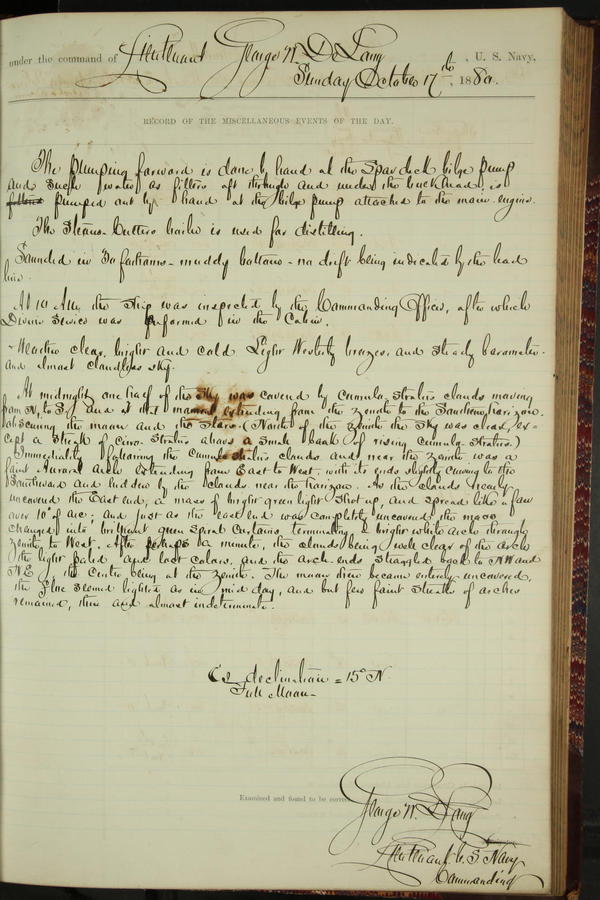 under the command of Lieutenant George W. De Long, U. S. Navy,
Sunday October 17th, 1880.
RECORD OF THE MISCELLANEOUS EVENTS OF THE DAY.
The pumping forward is done by hand at the Spar deck bilge pump
and such water as filters aft through and under the bulkhead is
pumped out by hand at the bilge pump attached to the main engine.
The Steam-Cutters boiler is used for distilling.
Sounded in fathoms - muddy bottom - no drift being indicated by the lead
line.
At 10 AM the Ship was inspected by the Commanding Officer, after which
Divine Service was performed in the Cabin.
Weather clear, bright and cold Light Westerly breezes, and steady barometer.
and almost cloudless sky.
At midnight one half of the Sky was covered by Cumulo-Stratus clouds moving
from N, to S, and at that moment extending from the zenith to the Southern horizon.
obscuring the moon and the Stars. (North of the zenith the Sky was clear, ex-
cept a streak of Cirro-Stratus above a small bank of rising cumulo-Stratus.)
Immediately following the Cumulo-Stratus clouds and near the zenith was a
faint Auroral Arch extending from East to West, with its ends slightly curving to the
Southward and hidden by the clouds near the horizon. As the clouds nearly
uncovered the East end, a mass of bright green light shot up, and spread like a fan
over 10° of arc; and just as the east end was completely uncovered the mass
changed into brilliant green Spiral Curtains, terminating a bright white arch through
zenith to West. After perhaps a minute, the clouds being well clear of the arch
the light paled and lost colour, and the arch ends straggled back to NW and
NE, the Centre being at the zenith. The moon then became entirely uncovered,
the floe seemed lighted as in mid day, and but few faint streaks of arches
remained, thin and almost indeterminate.
declination = 15° N
Full Moon -
Examined and found to be correct.
George W. De Long
Lieutenant U. S Navy
Commanding